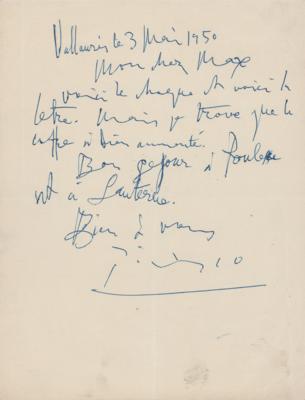 Vallauris le 3 Mai 1950
Mon cher Max
voici le chèque et voici la
letre. Mais je trove que le
a bien aumenté.
Bon sejour à
et à
Bien à vous
Picasso